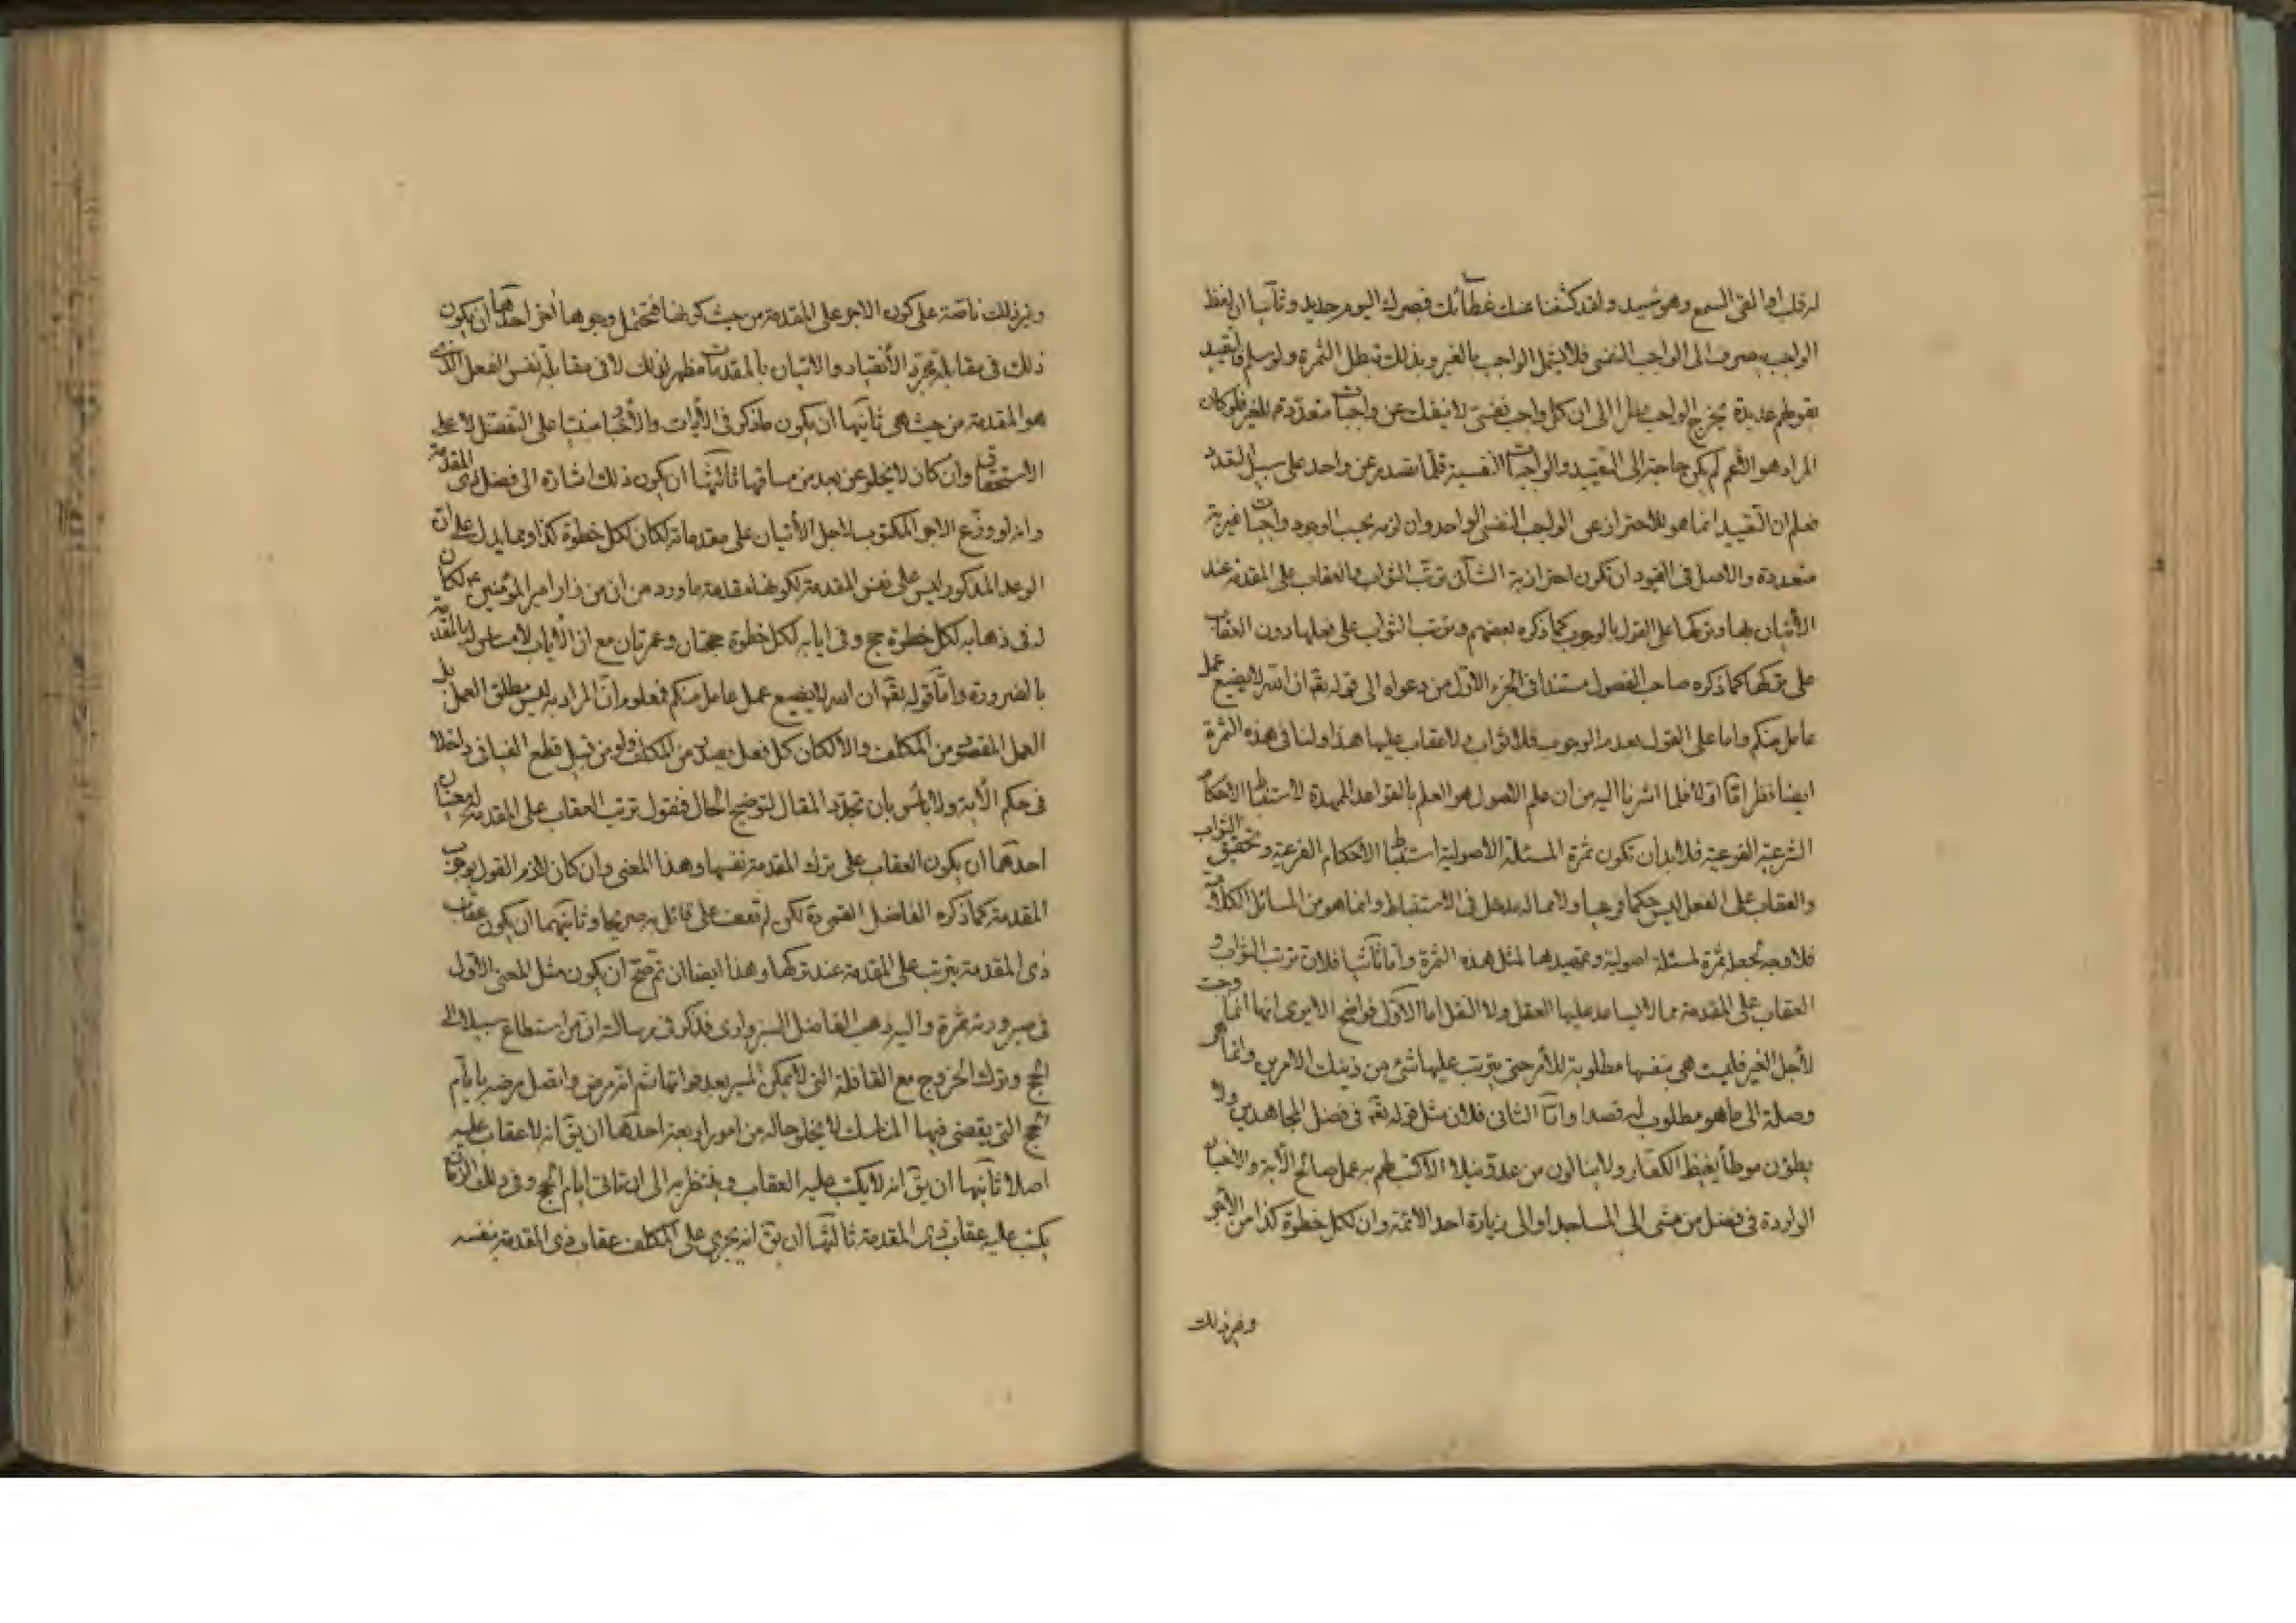 له قلب او القى السمع وهو شهيد ولقد كشفنا عنك غطائك فبصرك اليوم حديد وثانيا ان لفظ
الواجب ينصرف الى الواجب النفسي فلا يشمل الواجب بالغير وبذلك تبطل الثمرة ولو سلم فالتقييد
بقولهم عديدة يخرج الواجب نظرا الى ان كل واجب نفسي لا ينفك عن واجبات متعددة للغير فلو كان
المراد هو الاعم لم يكن حاجة الى التقييد والواجبات النفسية قلما تصدر عن واحد على سبيل التعدد
فعلم ان التقييد انما هو للاحتراز عن الواجب النفسي الواحد وان لزمه بحسب الوجود واجبات غيرية
متعددة والاصل في القيود ان تكون احترازية الثالث ترتب الثواب والعقاب على المقدمة عند
الأتيان بها وتركها على القول بالوجوب كما ذكره بعضهم وترتب الثواب على فعلها دون العقاب
على تركها كما ذكره صاحب الفصول مستندا في الجزء الاول من دعواه الى قوله تعالى ان الله لا يضيع عمل
عامل منكم واما على القول بعدم الوجوب فلا ثواب ولا عقاب عليها هذا ولنا في هذه الثمرة
ايضا نظر اما اولا فلما اشرنا اليه من ان علم الاصول هو العلم بالقواعد الممهدة لاستنباط الاحكام
الشرعية الفرعية فلا بد ان تكون ثمرة المسئلة الاصولية استنباط الاحكام الفرعية وتحقيق الثواب
والعقاب على الفعل ليس حكما فرعيا ولا مما له مدخل في الاستنباط وانما هو من المسائل الكلامية
فلا وجه لجعله ثمرة لمسئلة اصولية وتمهيدها لمثل هذه الثمرة واما ثانيا فلان ترتب الثواب و
العقاب على المقدمة مما لا يساعد عليها العقل ولا النقل اما الاول فواضح الا يرى انها انما وجبت
لأجل الغير فليست هي بنفسها مطلوبة للأمر حتى يترتب عليها شئ من ذينك الامرين وانما هو
وصلة الى ما هو مطلوب له قصدا واما الثاني فلان مثل قوله تعالى في فضل المجاهدين ولا
يطؤن موطأ يغيظ الكفار ولا ينالون من عدو نيلا الا كتب لهم به عمل صالح الآية والاخبار
الواردة في فضل من مشى الى المساجد او الى زيارة احد الائمة وان لكل خطوة كذا من الاجر
وغير ذلك
وغير ذلك ناصة على كون الاجر على المقدمة من حيث كونها فتحتمل وجوها أخر احدها ان يكون
ذلك في مقابلة تجرد الأنقياد والاتيان بالمقدمات مظهر لذلك لا في مقابلة نفس الفعل الذي
هو المقدمة من حيث هي ثانيها ان يكون ما ذكر في الآيات والأخبار مبنيا على التفضل لا على
الاستحقاق وان كان لا يخلو عن بعد من مساقها ثالثها ان يكون ذلك اشارة الى فضل ذي المقدمة
وانه لو وزع الاجر المكتوب لاجل الأتيان على مقدماته لكان لكل خطوة كذا ومما يدل على ان
الوعد المذكور ليس على نفس المقدمة لكونها مقدمة ما ورد من ان من زار امير المؤمنين ع لكان
له في ذهابه لكل خطوة حج وفي ايابه لكل خطوة حجتان وعمرتان مع ان الأياب لا مساس له بالمقدمة
بالضرورة واما قوله تعالى ان الله لا يضيع عمل عامل منكم فمعلوم ان المراد به ليس مطلق العمل بل
العمل المقصود من المكلف والا لكان كل فعل يصدر من المكلف ولو من قبيل قطع الفيافي داخلا
في حكم الآية ولا بأس بان نجدد المقال لتوضيح الحال فنقول ترتب العقاب على المقدمة له معنيان
احدهما ان يكون العقاب على ترك المقدمة نفسها وهذا المعنى وان كان لازم القول بوجوب
المقدمة كما ذكره الفاضل القمي ره لكن لم نقف على قائل به صريحا وثانيهما ان يكون عقاب
ذي المقدمة يترتب على المقدمة عند تركها وهذا ايضا ان تم صح ان يكون مثل المعنى الاول
في صيرورته ثمرة واليه ذهب الفاضل السبزواري فذكر في رسالة ان من استطاع سبيلا الى
الحج وترك الخروج مع القافلة التي لا يمكن المسير بعد فواتها ثم انه مرض واتصل مرضه بايام
الحج التي يقضى فيها المناسك لا يخلو حاله من امور اربعة احدها ان يق انه لا عقاب عليه
اصلا ثانيها ان يق انه لا يكتب عليه العقاب وينتظر به الى ان تاتي ايام الحج وفي ذلك الزمان
يكتب عليه عقاب ذي المقدمة ثالثها ان يق انه يجري على المكلف عقاب ذي المقدمة بنفسه